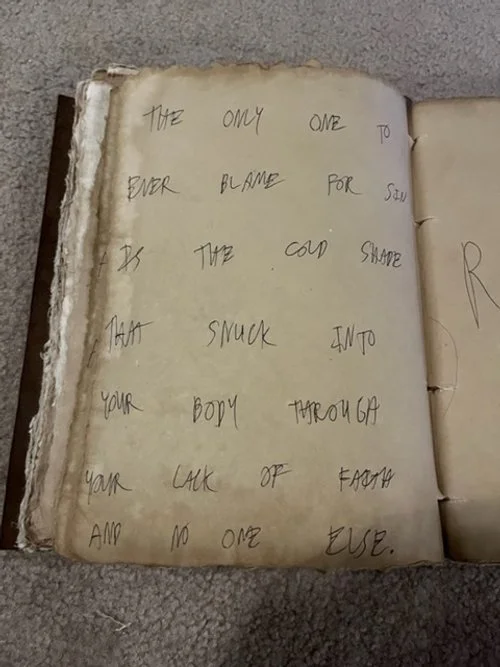 THE ONLY ONE TO
EVER BLAME FOR SIN
IS THE COLD SHADE
THAT SNUCK INTO
YOUR BODY THROUGH
YOUR LACK OF FAITH
AND NO ONE ELSE.
R